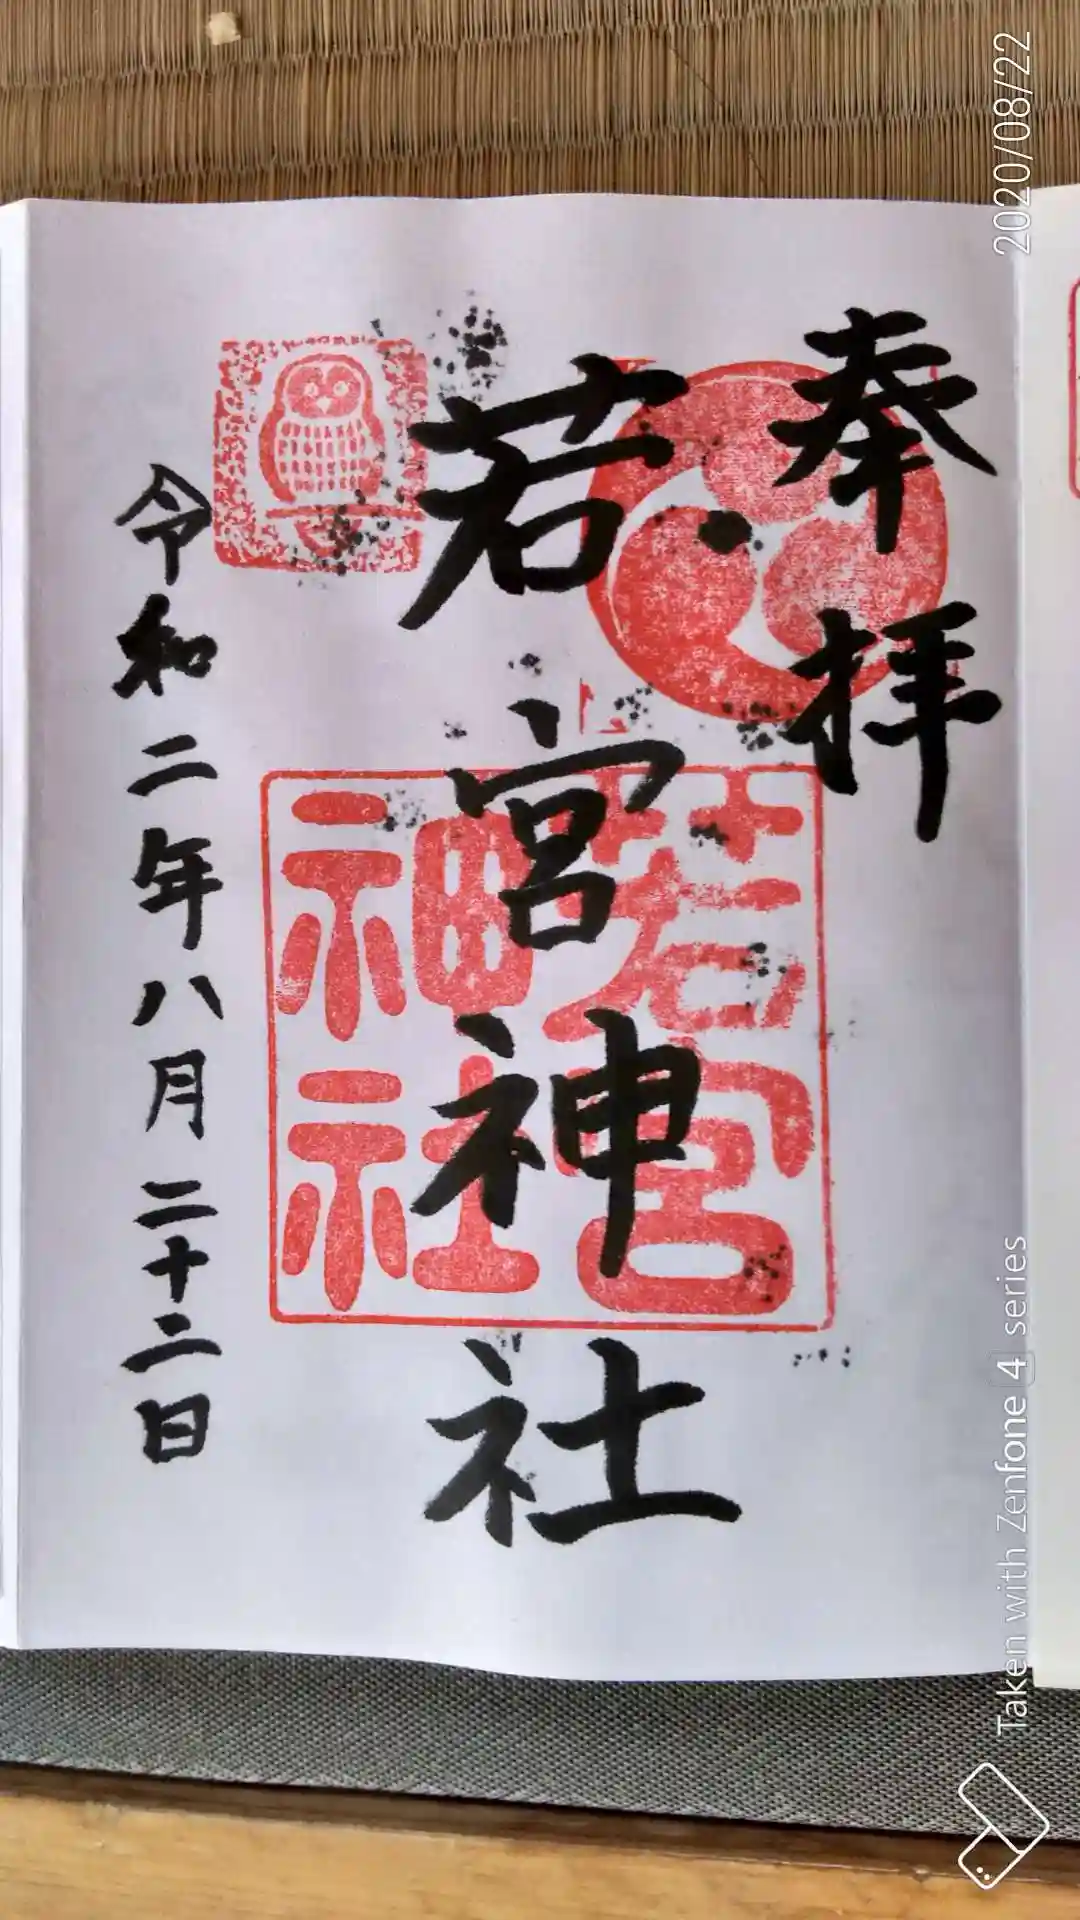 奉拝
若宮神社
令和二年八月二十二日
若宮
神社
2020/08/22
Taken with Zenfone 4 series